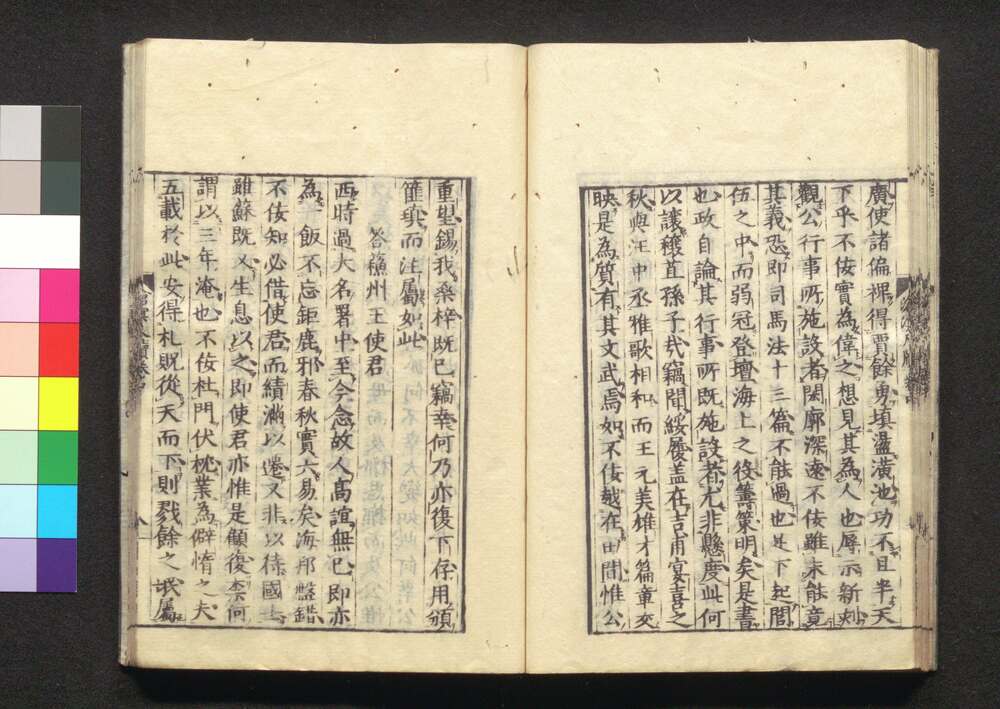 廣使諸偏裨得賈餘勇填盪潢池功不且半天
下乎不佞實為偉之想見其為人也辱示新刻
觀公行事所施設者閎廓深遠不佞雖未能竟
其義恐即司馬法十三篇不能過也足下起閭
伍之中而弱冠登壇海上之役籌策明矣是書
也政自論其行事所既施設者尤非懸度此何
以讓穰苴孫子哉竊聞綏履盖在吉甫宴喜之
秋與汪中丞雅歌相和而王元美雄才篇章交
映是為質有其文武焉如不佞越在田間惟公
重塱錫我桑梓既已竊幸何乃亦復下存用頒
篚璵而注屬如此
答蘓州王使君
西時過大名署中至今念故人髙誼無已即亦
為一飯不忘鉅鹿邪春秋實六易矣海邦盤錯
不佞知必借使君而績滿以遷又非以待國士
雖蘇既又生息以之即使君亦惟是顧復云何
謂以三年淹也不佞杜門伏枕業為僻惰之夫
五載於此安得札貺從天而下則戮餘之氓屬